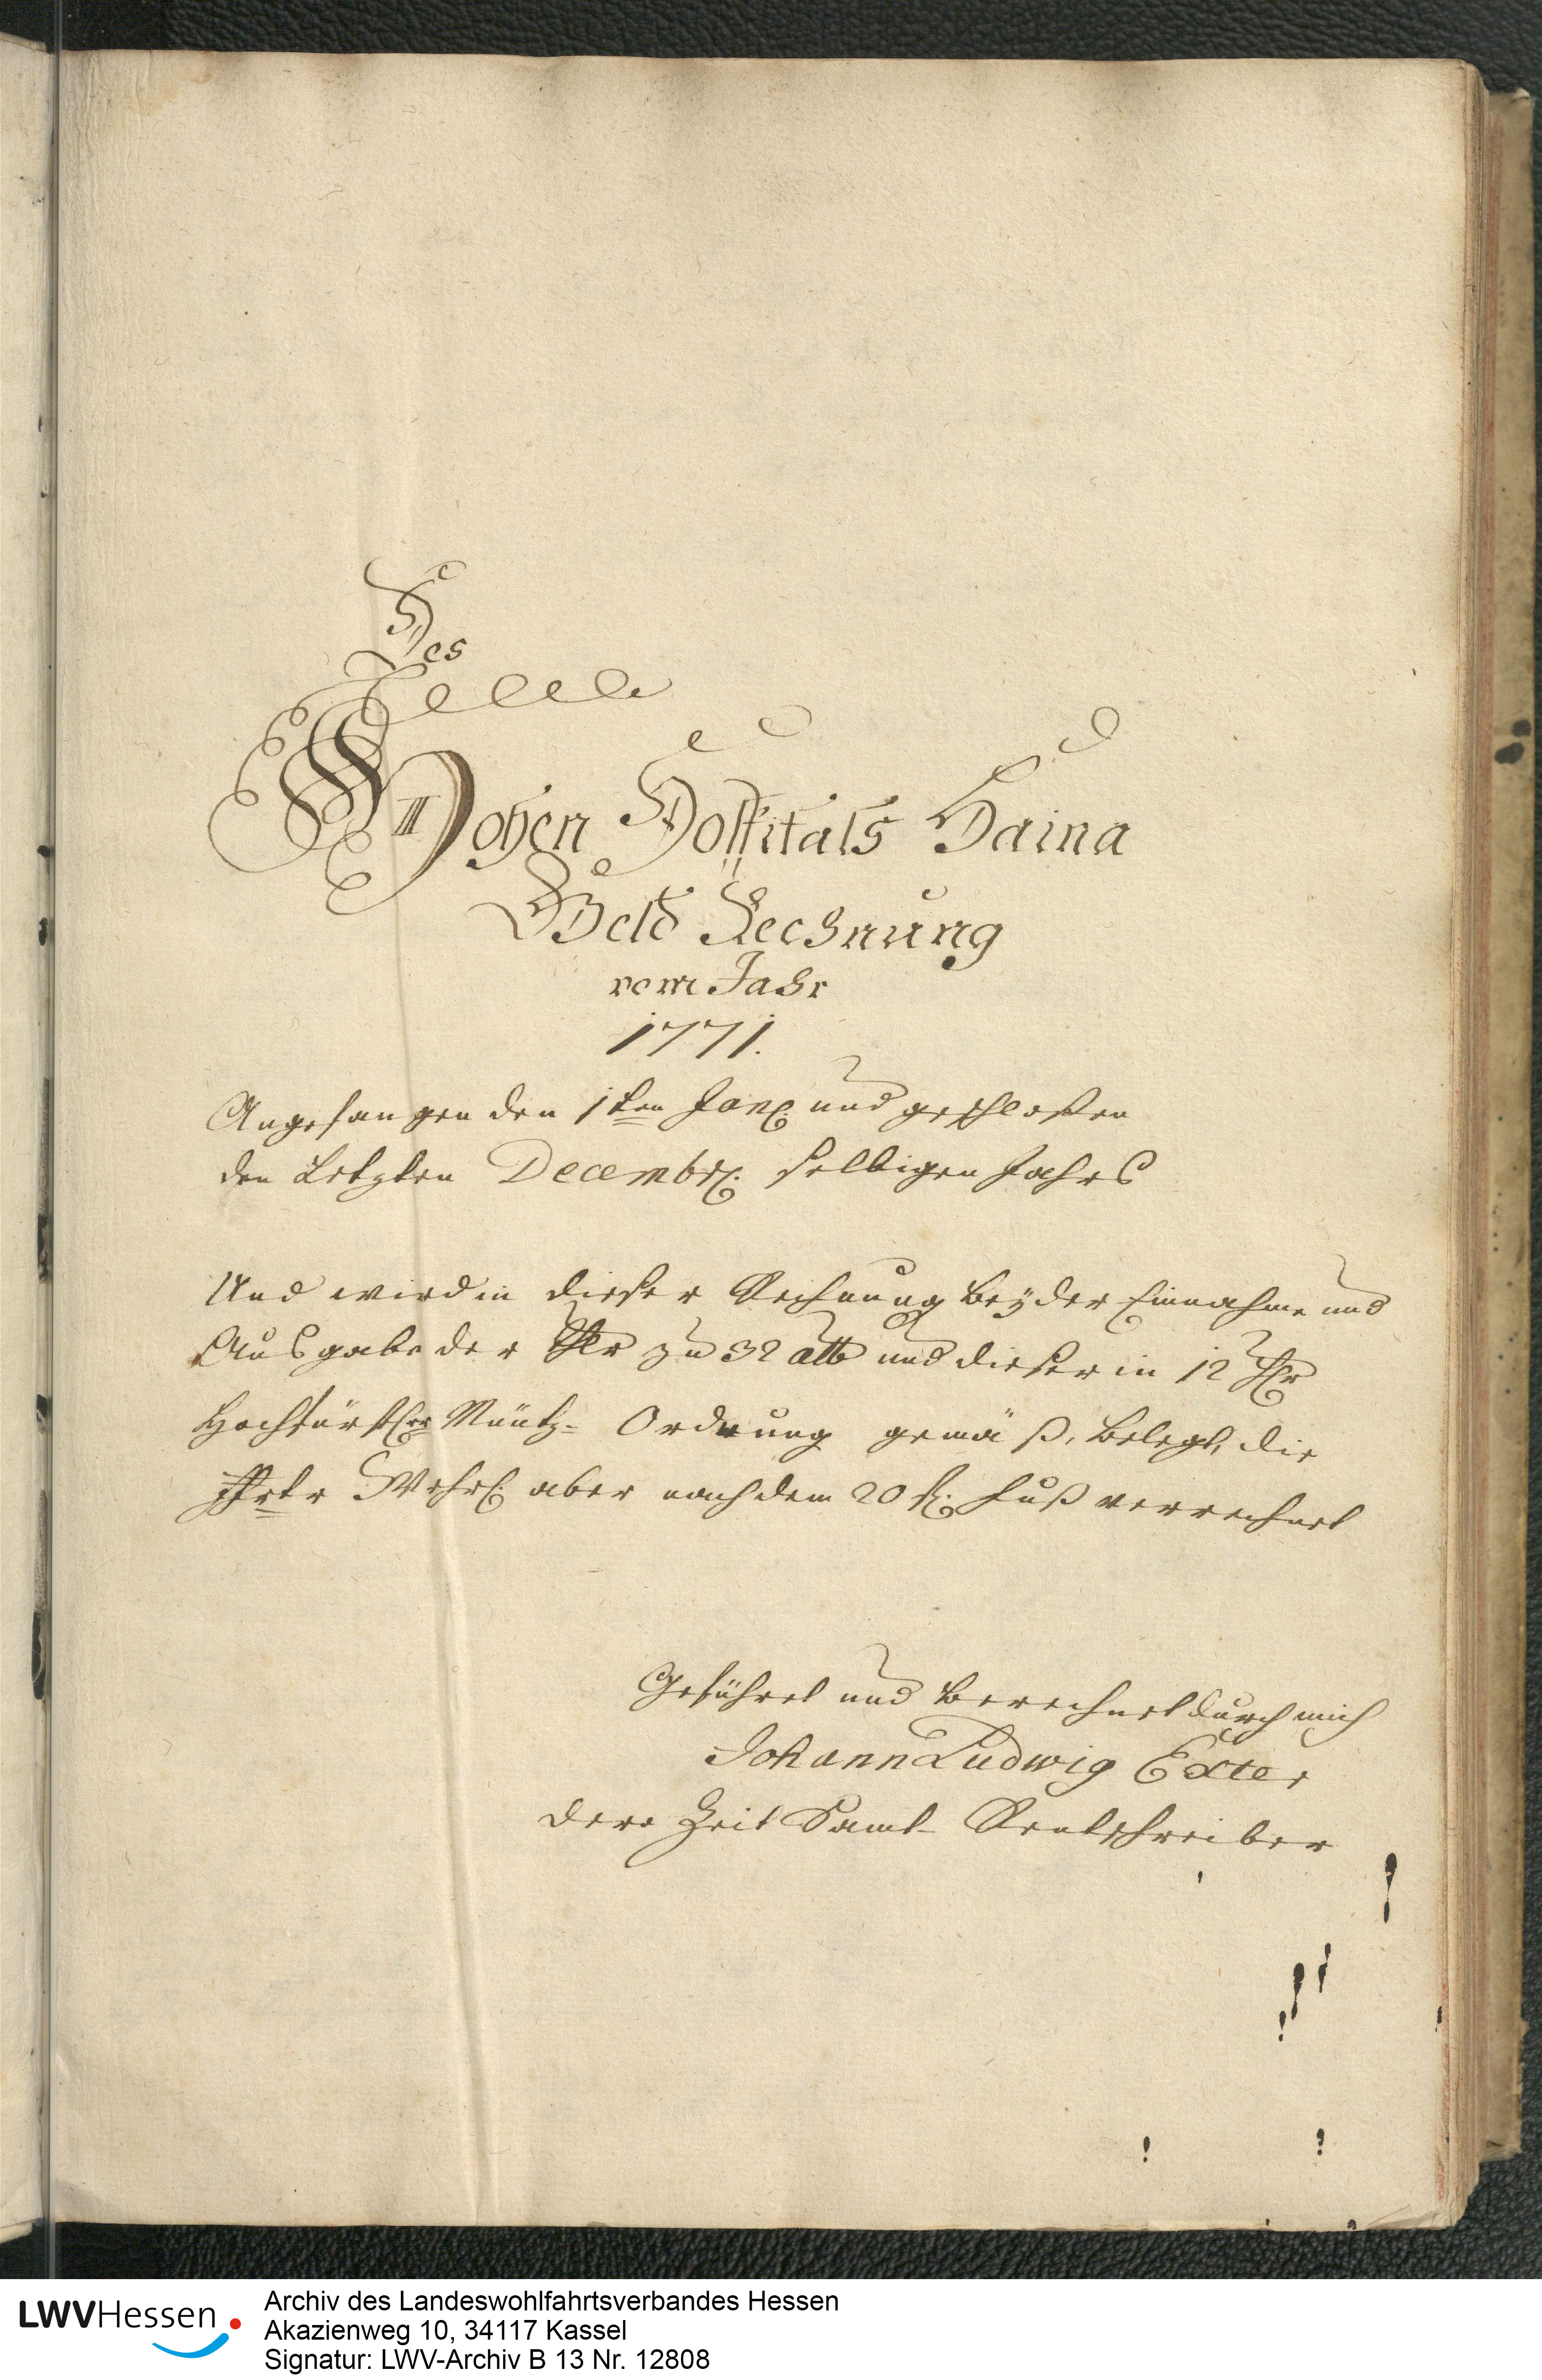 Des
Hohen Hospitals Haina
Geld Rechnung
vom Jahr
1771.
Angefangen den 1ten Jan. und geschlossen
den Letzten Decembr. selbigen Jahrs
Und wird in dieser Rechnung bey der Einnahme und
Ausgabe der zu 32 alb und dieser in 12 hlr
Hochfürstler Müntz- Ordnung gemäß, belegt, die
aber nach dem 20 fl. Fuß verrechnet
Geführet und berechnet durch mich
Johann Ludwig Exter
dere Zeit Samt- Rentschreiber
LWVHessen
Archiv des Landeswohlfahrtsverbandes Hessen
Akazienweg 10, 34117 Kassel
Signatur: LWV-Archiv B 13 Nr. 12808